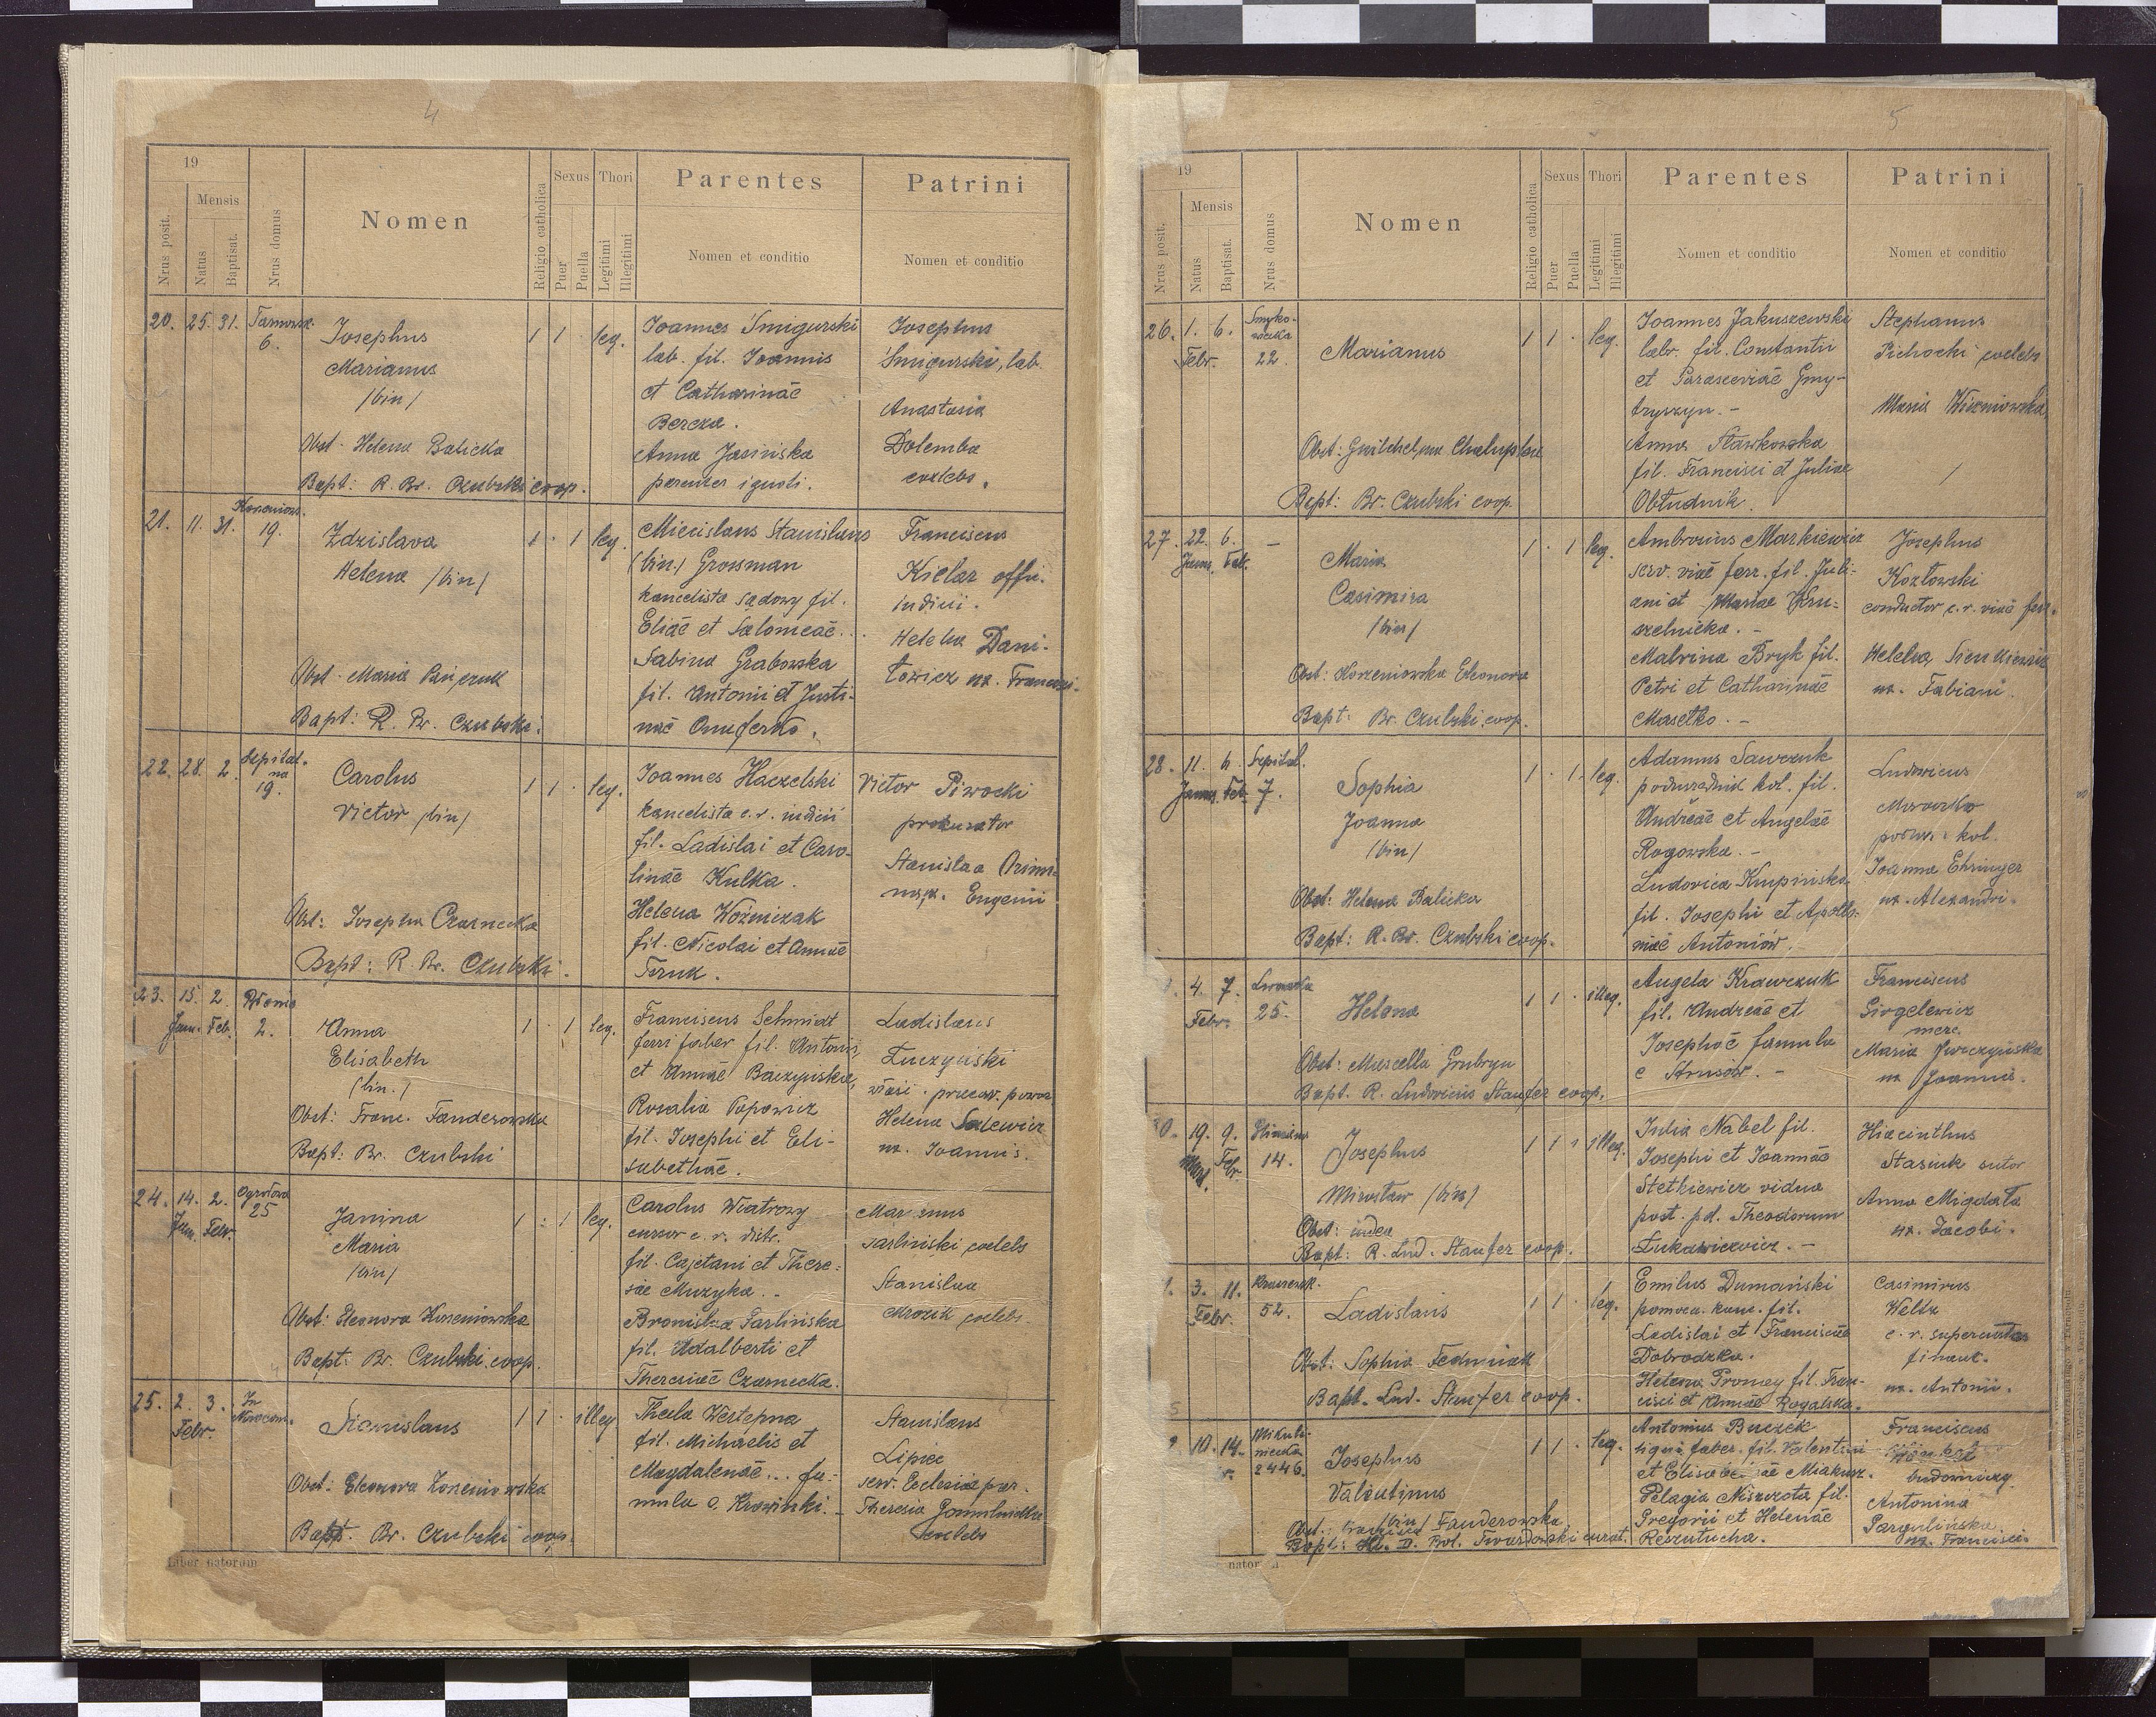 4
19
Nrus posit.
Mensis
Natus
Baptisat.
Nrus domus
Nomen
Religio catholica
Sexus
Puer
Puella
Thori
Legitimi
Illegitimi
Parentes
Nomen et conditio
Patrini
Nomen et conditio
20. 25. 31. 6.
Josephus
Marianus
/bin/
Obst. Helena Balicka
Bapt: R. Br. Czubski coop.
1 1 · leg.
Joannes Śmigurski
lab. fil. Joannis
et Catharinae
Bereza.
Anna Jasińska
parentes ignoti.
Josephus
Śmigurski, lab.
Anastasia
Dolemba
21. 11. 31. 19.
Zdzislava
Helena /bin/
Obst. Maria
Bapt: R. Br. Czubski.
1 · 1 leg.
Miecislaus Stanislaus
(bin.) Grossman
kancelista sądowy fil.
Eliae et Salomeae...
Sabina Grabowska
fil. Antonii et Justi-
nae Onuferko.
Franciscus
Kielar offi.
iudicii.
Helena Dani-
lowicz ux. Francisci.
22. 28. 2. Szpital-
na
19.
Carolus
Victor /bin/
Obst: Josepha Czarnecka
Bapt: R. Br. Czubski.
1 1 · leg.
Joannes Haczelski
kancelista c.r. iudicii
fil. Ladislai et Caro-
linae Kulka.
Helena Woźniczak
fil. Nicolai et Annae
Teruk.
Victor Piwocki
prokurator
Stanislaa
Eugenii
23. 15. 2.
Jan. Feb. 2.
Anna
Elisabeth
(bin.)
Obst: Franc. Fanderowska
Bapt: Br. Czubski
1 · 1 leg.
Franciscus Schmidt
ferri faber fil. Antonii
et Annae Baczyńska,
Rosalia Popowicz
fil. Josephi et Eli-
sabethae.
Ladislaus
Łuczyński
Helena Salewicz
ux. Joannis.
24. 14. 2. Ogrodowa
Jan. Febr. 25
Janina
Maria
/bin/
Obst: Eleonora Korzeniowska
Bapt: Br. Czubski coop.
1 · 1 leg.
Carolus Wiatrowy
cursor c. r. distr.
fil. Cajetani et There-
siae Muzyka..
Bronislaa Parlińska
fil. Adalberti et
Theresiae Czarnecka.
Marianus
Parliński coelebs
Stanislaa
Mrozik coelebs.
25. 2. 3. In
Febr.
Stanislaus
Obst: Eleonora Korzeniowska
Bapt. Br. Czubski coop.
1 1 · illeg.
Thecla Westepna
fil. Michaelis et
Magdalenae... fa-
mula e. Krowinki.
Stanislaus
Lipiec
serv. Ecclesiae par.
Theresia
coelebs
Liber natorum
5
19
Nrus posit.
Mensis
Natus
Baptisat.
Nrus domus
Nomen
Religio catholica
Sexus
Puer
Puella
Thori
Legitimi
Illegitimi
Parentes
Nomen et conditio
Patrini
Nomen et conditio
26. 1. 6. Smyko-
wiecka
Febr. 22.
Marianus
Obst:
Bapt: Br. Czubski coop.
1 1 · leg.
Joannes Jakuszewski
labr. fil. Constantii
et Parasceviae Gmy-
tryszyn. -
Anna Sławkowska
fil. Francisci et Juliae
Obłudnik.
Stephanus
Pichocki coelebs
Maria Wiśniowska
27. 22. 6. -
Janu. Feb.
Maria
Casimira
/bin/
Obst: Korzeniowska Eleonora
Bapt: Br. Czubski coop.
1 · 1 leg.
Ambrosius Markiewicz
serv. viae ferr. fil. Juli-
ani et Mariae Kru-
szelnicka. -
Malvina Bryk fil.
Petri et Catharinae
Masełko. -
Josephus
Kozłowski
conductor c.r. viae ferr.
Helena Sienkiewicz
ux. Fabiani.
28. 11. 6. Szpital.
Janu. Feb. 7.
Sophia
Joanna
/bin/
Obst: Helena Balicka
Bapt: R. Br. Czubski coop.
1 · 1 leg.
Adamus Sawczuk
podurzędnik kol. fil.
Andreae et Angelae
Rogowska. -
Ludovica Krupińska
fil. Josephi et Apollo-
niae Antoniów. -
Ludovicus
kol.
Joanna Ehringer
ux. Alexandri.
4. 7.
Febr. 25.
Helena
Obst: Marcella
Bapt. R. Ludovicus Staufer coop.
1 1 · illeg.
Angela Krawczuk
fil. Andreae et
Josephae famula
e Strusów. -
Franciscus
Girgelewicz
merc.
Maria Jurczyńska
ux Joannis.
0. 19. 9.
Febr. 14.
Josephus
Mirosław (bin)
Obst: iudea
Bapt: R. Lud. Staufer coop.
1 1 · illeg.
Julia Nabel fil.
Josephi et Joannae
Stetkiewicz vidua
post. pd. Theodorum
Łukasiewicz. -
Hiacinthus
Stasiuk sutor
Anna Migdała
ux. Jacobi.
1. 3. 11.
Febr. 52.
Ladislaus
Obst: Sophia Fedmiak
Bapt. Lud. Staufer coop.
1 1 · leg.
Emilus Dumański
fil.
Ladislai et Franciscae
Dobrodzka.
Helena Pronay fil. Fran-
cisci et Annae Rogalska.
Casimirus
Weltz
c. r.
finanz.
ux. Antonii.
10. 14. Mikuli-
niecka
2446.
Josephus
Valentinus
/bin/
Obst: Fanderowska
Bapt: Twardowski curat.
1 1 · leg.
Antonius Buczek
lign. faber. fil. Valentini
et Elisabethae
Pelagia Niszczota fil.
Gregorii et Helenae
Reszutucha.
Franciscus
budowniczy
Antonina
Pargulińska
ux. Francisci.
nator